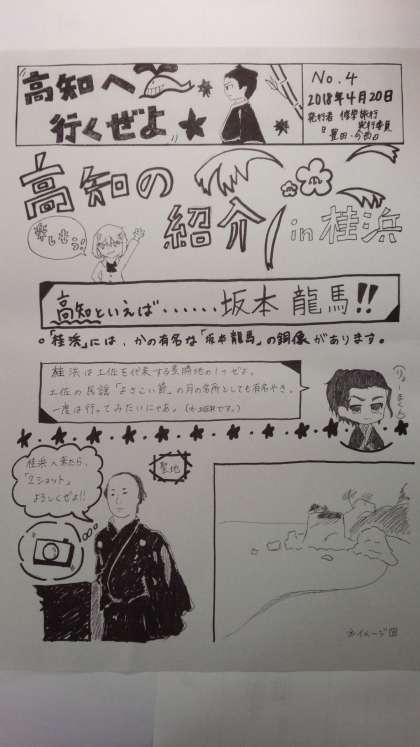 高知へ
行くぜよ
No.4
2018年4月20日
発行者 修学旅行
実行委員
高知の
紹介 in 桂浜
楽しもう!
高知といえば・・・・・・坂本 龍馬!!
「桂浜」には、かの有名な「坂本龍馬」の銅像があります。
桂浜は土佐を代表する景勝地の1つぜよ。
土佐の民謡「よさこい節」の月の名所としても有名やき、
一度は行ってみたいにゃあ。
りょーまくん
桂浜へ来たら、
「2ショット」
よろしくぜよ!!
聖地
※イメージ図